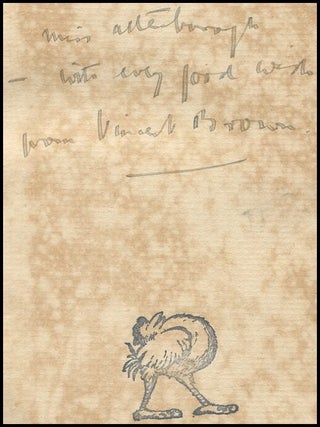 Miss Attenborough
– with every good wish
from Vincent Brown.